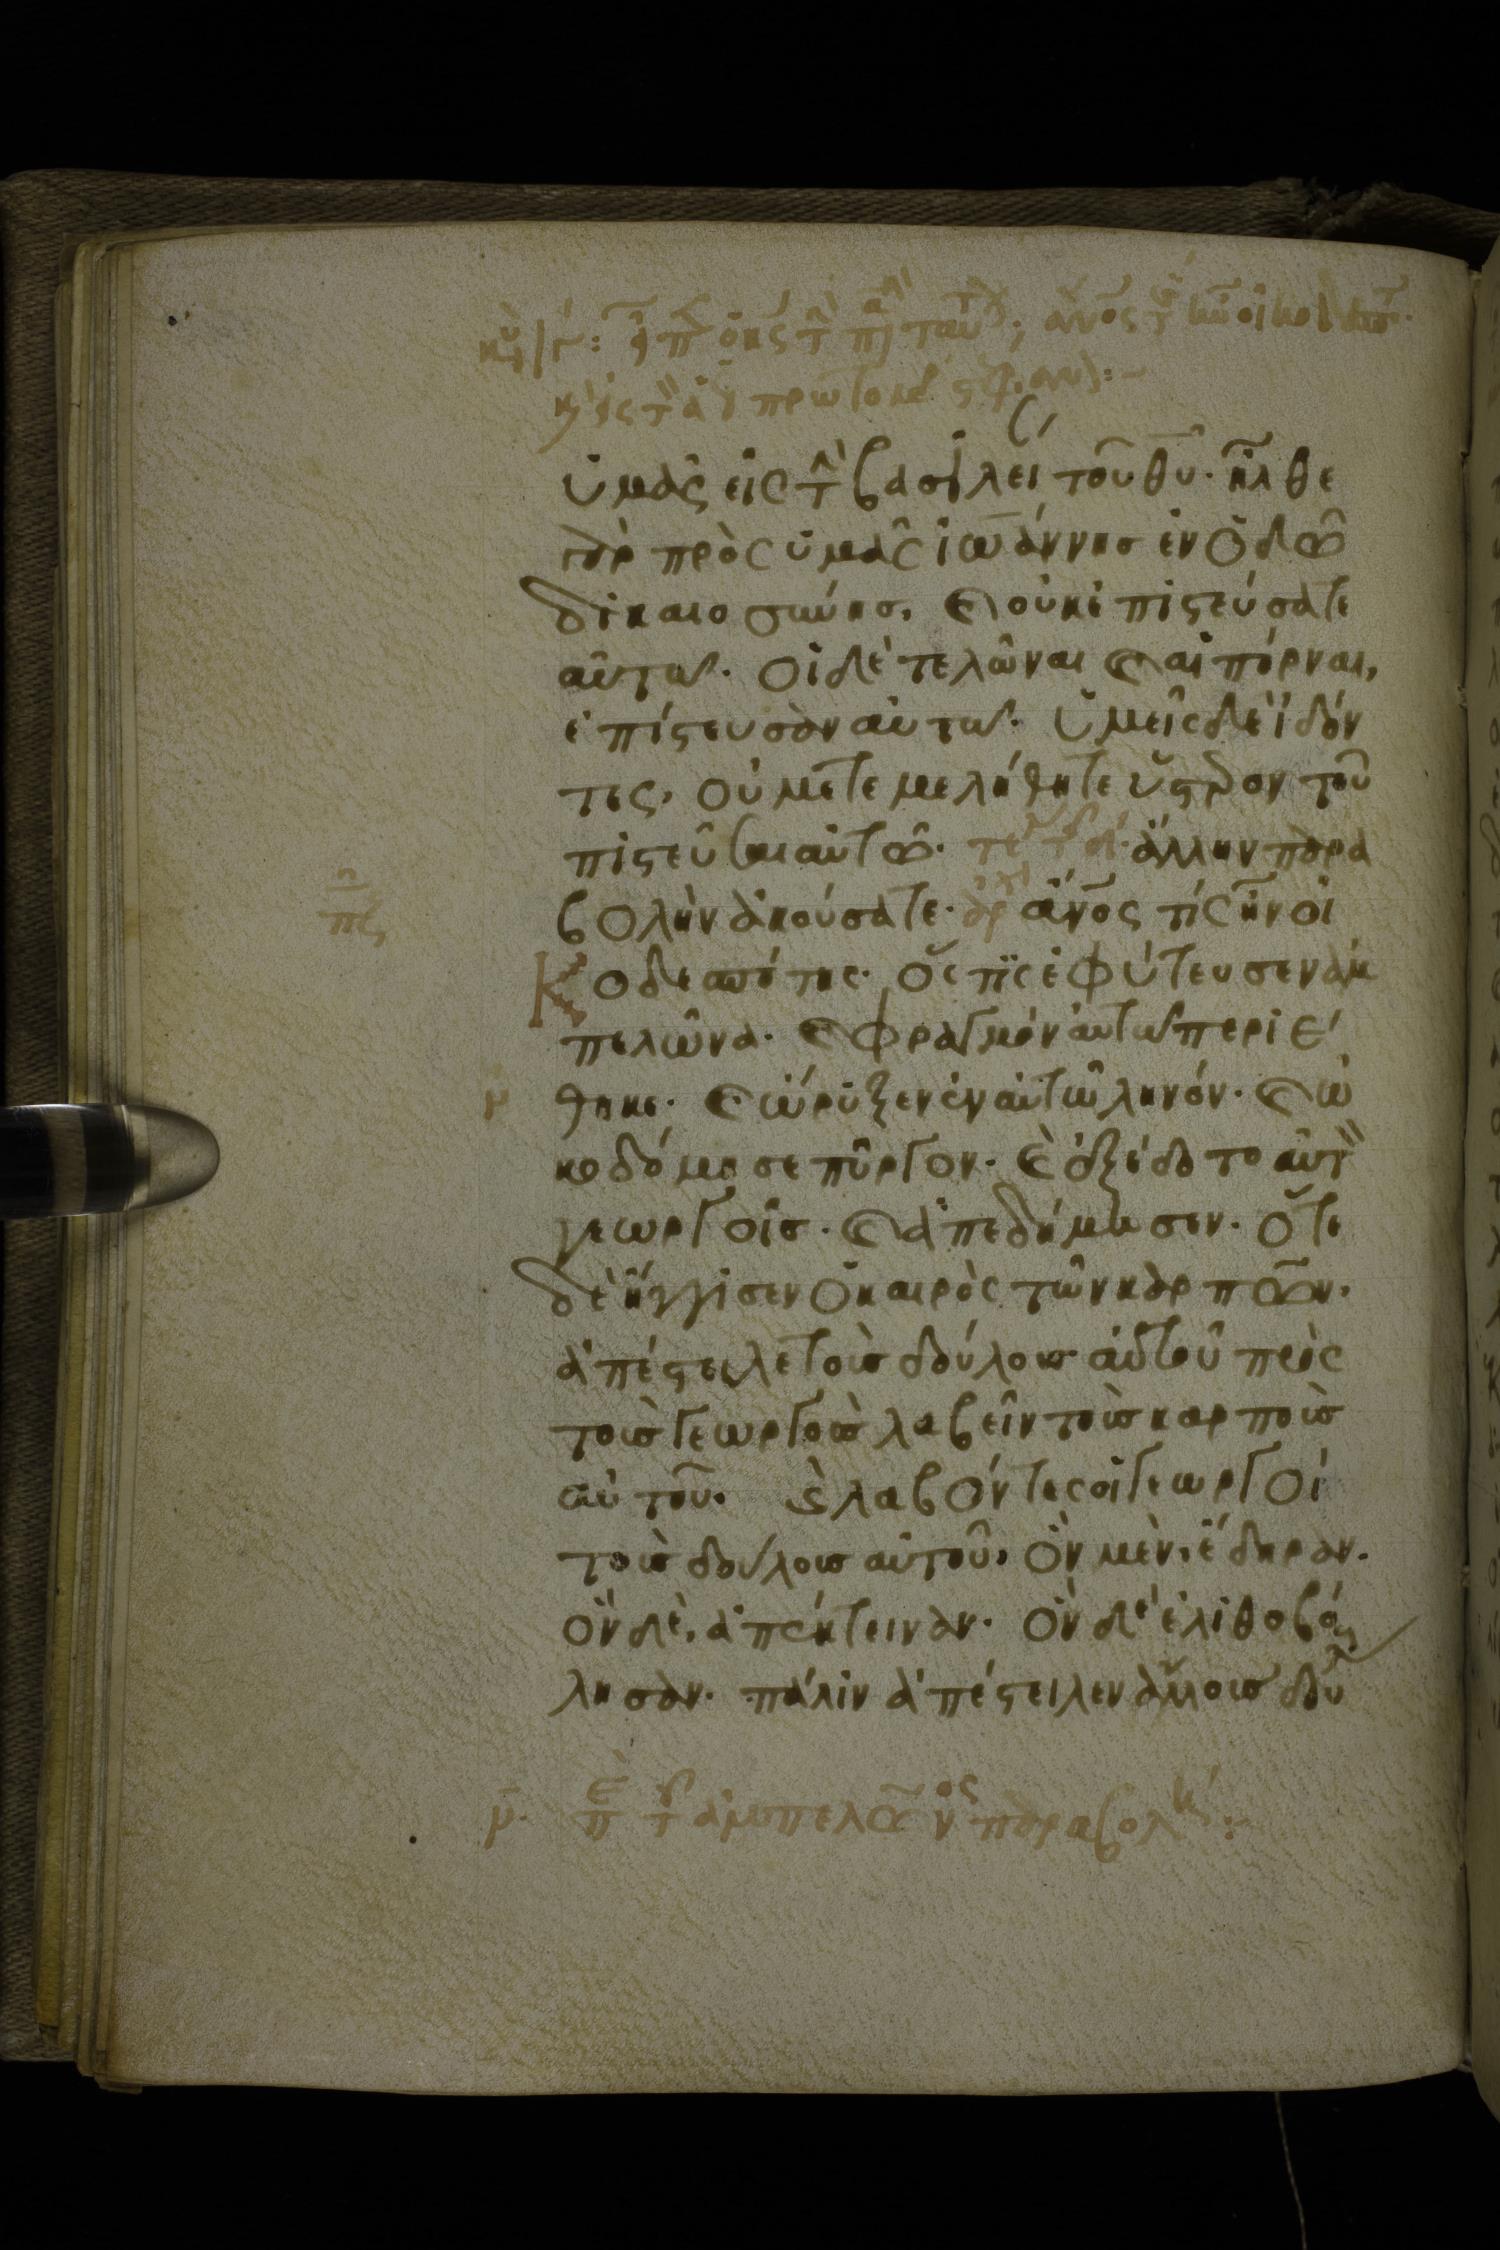 ὑμᾶς εἰς τὴν βασιλεί τοῦ θυ. ἦλθε
γὰρ πρὸς ὑμᾶς ἰωάννησ ἐν ὁδῶ
δικαιοσύνησ, καὶ οὐκ ἐπιστεύσατε
αὐτῶ. οἱ δὲ τελῶναι καὶ αἱ πόρναι,
ἐπίστευσαν αὐτῶ. ὑμεῖς δὲ ἰδόν
τες, οὐ μετεμελήθητε ὕστερον τοῦ
πιστεῦσαι αὐτῶ. ἄλλην παρα
βολὴν ἀκούσατε. ἄνος τίς ἦν οἰ
Κοδεσπότης. ὅς τις ἐφύτευσεν ἀμ
πελῶνα. καὶ φραγμὸν αὐτῶ περιέ
θηκε. καὶ ὤρυξεν ἐν αὐτῶ ληνόν. καὶ ὠ
κοδόμησε πύργον. καὶ ἐξέδοτο αὐτὸν
γεωργοῖσ. καὶ ἀπεδήμησεν. ὅτε
δὲ ἤγγισεν ὁ καιρὸς τῶν καρπῶν.
ἀπέστειλε τοὺσ δούλουσ αὐτοῦ πρὸς
τοὺσ γεωργοὺσ λαβεῖν τοὺσ καρποὺσ
αὐτοῦ. καὶ λαβόντες οἱ γεωργοὶ
τοὺσ δούλουσ αὐτοῦ, ὃν μὲν, ἔδηραν.
ὃν δὲ, ἀπέκτειναν. ὃν δὲ ἐλιθοβό
λησαν. πάλιν ἀπέστειλεν ἄλλουσ δού
μ. πε τοῦ ἀμπελῶνος παραβολή: